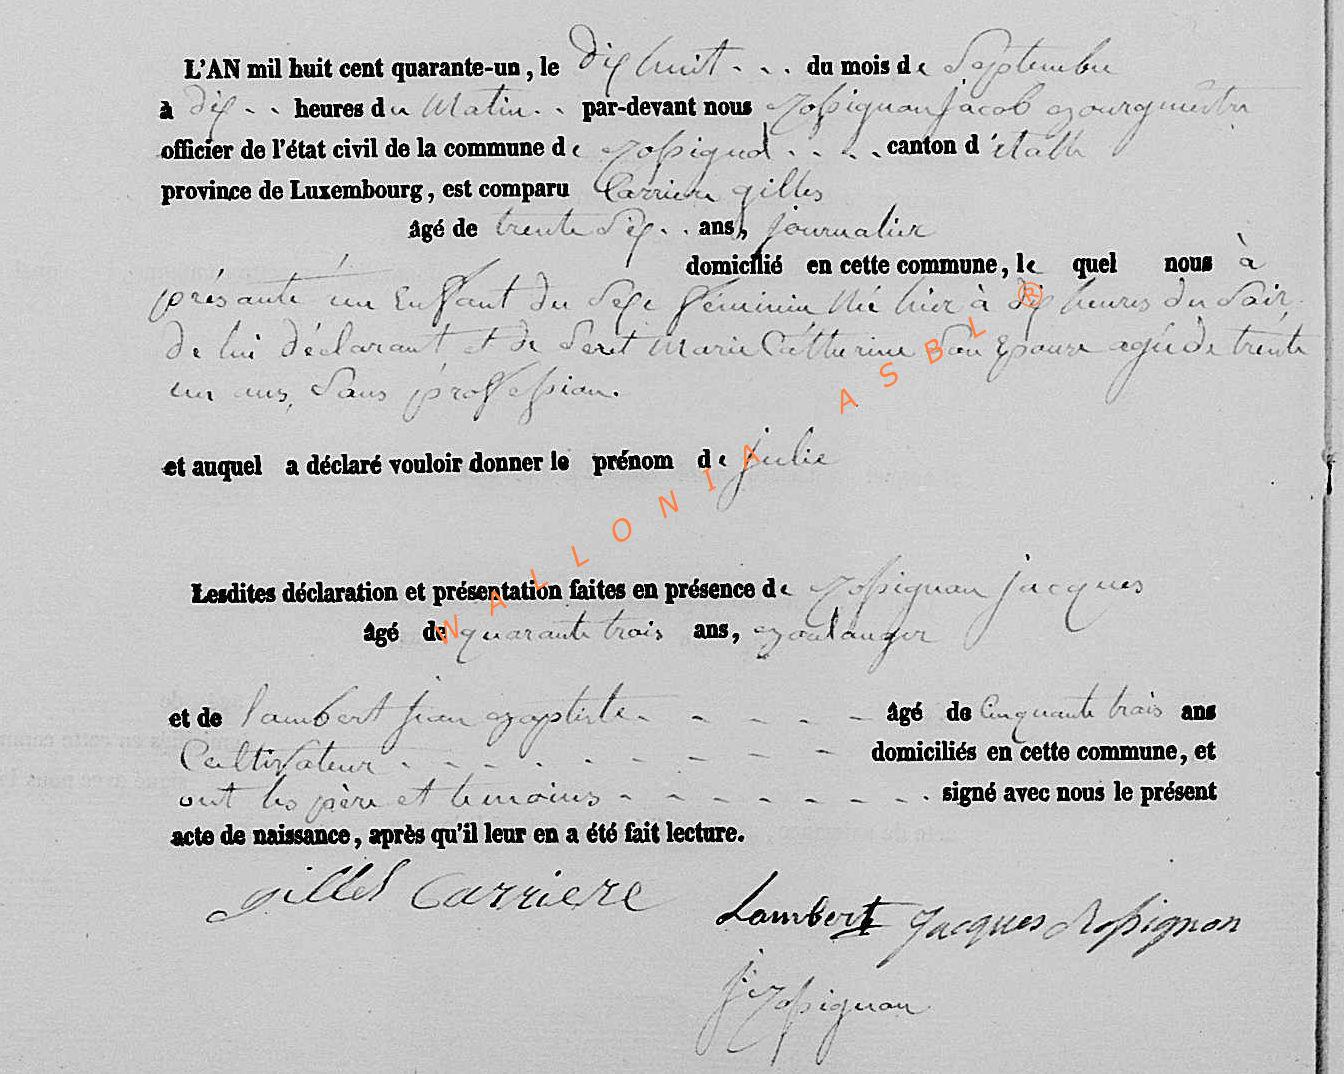 L'AN mil huit cent quarante-un, le dix huit du mois de Septembre
à dix heures du Matin par-devant nous Rossignon Jacob Bourgmestre
officier de l'état civil de la commune de Rossignol canton d'étalle
province de Luxembourg, est comparu Carriere gilles
âgé de trente Six ans, journalier
domicilié en cette commune, le quel nous à
présanté un Enffant du Sexe féminin Né hier à dix heures du Soir
de lui déclarant et de Marie Catherine Son Epouse agée de trente
un ans, Sans proffession.
et auquel a déclaré vouloir donner le prénom de julie
Lesdites déclaration et présentation faites en présence de Rossignon jacques
âgé de quarante trois ans, Boulanger
et de lambert jean Baptiste âgé de Cinquante trois ans
Cultivateur domiciliés en cette commune, et
ont les père et temoins signé avec nous le présent
acte de naissance, après qu'il leur en a été fait lecture.
gilles Carriere
Lambert Jacques Rossignon
j: Rossignon
WALLONIA ASBL ®